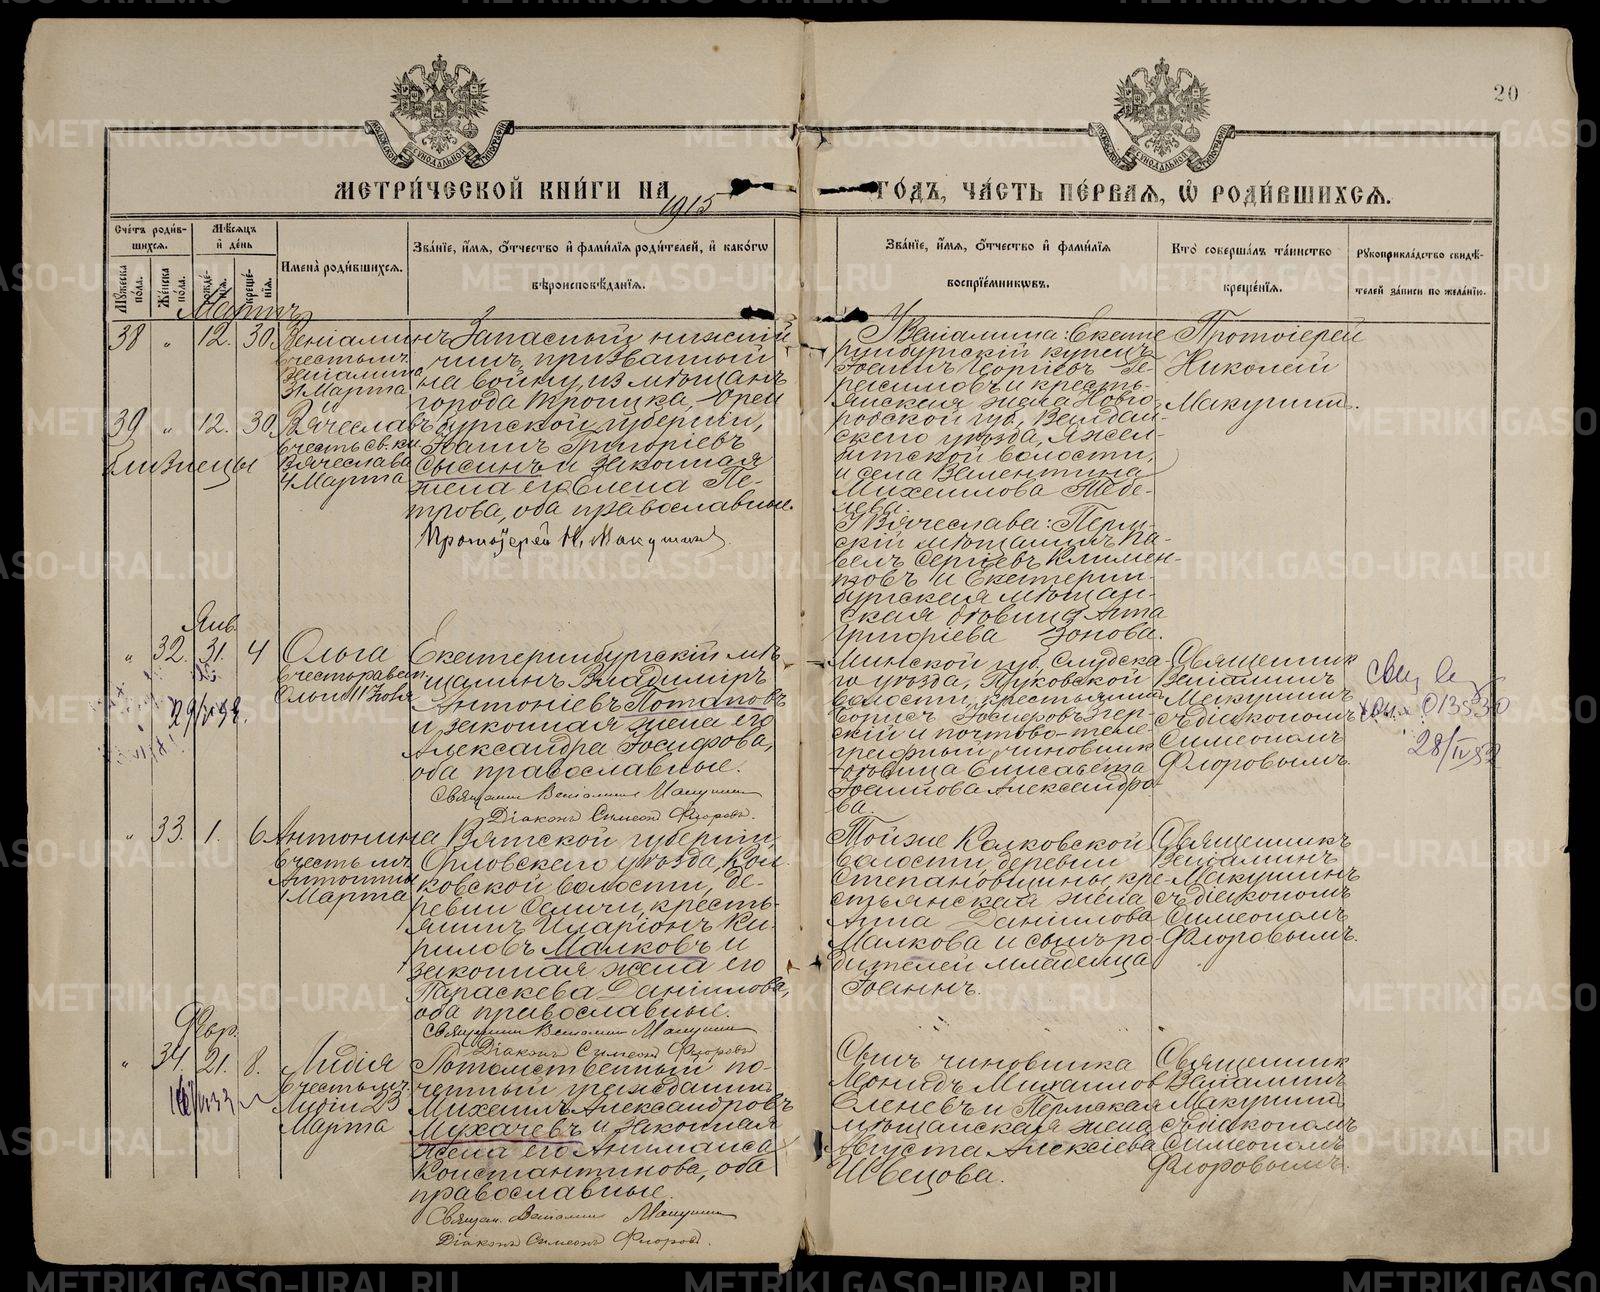 20
МЕТРИ́ЧЕСКОЙ КНИ́ГИ НА 1915 ГО́ДЪ, ЧА́СТЬ ПЕ́РВАЯ, Ѽ РОДИ́ВШИХСѦ.
Сче́тъ роди́вшихсѧ.
Мѣ́сѧцъ и҆ де́нь
Мꙋ́жеска по́ла.
Же́нска по́ла.
рожде́нїѧ.
креще́нїѧ.
И҆мена̀ роди́вшихсѧ.
Зва́нїе, и҆́мѧ, ѻ҆́тчество и҆ фами́лїѧ роди́телей, и҆ како́гѡ
вѣроисповѣ́данїѧ.
Зва́нїе, и҆́мѧ, ѻ҆́тчество и҆ фами́лїѧ
воспрїе́мникѡвъ.
Кто̀ соверша́лъ та́инство
креще́нїѧ.
Рꙋкоприкла́дство свидѣ́-
телей за́писи по жела́нїю.
Мартъ
38 " 12. 30
Веніаминъ
въ честь мч.
Веніамина
31 Марта
39 " 12. 30
Вячеславъ
въ честь св. кн.
Вячеслава
4 Марта
близнецы
Запасный нижній
чинъ, призванный
на войну, из мѣщанъ
города Троицка, Орен
бургской губерніи,
Іоаннъ Григоріевъ
Сысинъ и законная
жена его Елена Пе-
трова, оба православные.
Протоіерей Н. Макушин
У Веніамина: Екате
ринбургскій купецъ
Іоаннъ Георгіевъ Ге-
расимовъ и кресть-
янская жена Новго-
родской губ, Валдай-
скаго уѣзда,
волости,
и села Валентина
Михаилова
У Вячеслава: Перм-
скій мѣщанинъ Па-
велъ Сергіевъ Климен-
товъ и Екатерин-
бургская мѣщан-
ская вдовица Анна
Григоріева Зонова.
Протоіерей
Николай
Макушин.
Янв.
" 32. 31. 4
Ольга
въ честь равноап.
Ольги 11 Іюля
Екатеринбургскій мѣ
щанинъ Владиміръ
Антоніевъ Потаповъ
и законная жена его
Александра Іосифова,
оба православные.
Священникъ Веніаминъ Макушин
Діаконъ Симеонъ Флоровъ.
Минской губ, Слуцка-
го уѣзда,
волости, крестьянинъ
Борисъ Іосифовъ
и почтово-теле-
графный чиновник
вдовица Елисавета
Іоаннова Александро-
ва.
Священник
Веніаминъ
Макушинъ
съ діакономъ
Симеономъ
Флоровымъ.
013530
28/IV 52
" 33. 1. 6
Антонина
въ честь мч.
Антонины
1 Марта
Вятской губерніи,
Орловскаго уѣзда, Кол
ковской волости, де-
ревни кресть-
янинъ Иларіонъ Ки-
риловъ Малковъ и
законная жена его
Параскева Даніилова,
оба православные.
Священникъ Веніаминъ Макушин
Діаконъ Симеонъ Флоровъ
Той же Колковской
волости, деревни
Степановщины, кре-
стьянская жена
Анна Даніилова
Малкова и сынъ ро-
дителей младенца
Іоаннъ.
Священникъ
Веніаминъ
Макушинъ
съ діакономъ
Симеономъ
Флоровымъ.
Февр.
" 34. 21. 8.
Лидія
въ честь мч.
Лидіи 23
Марта
Потомственный по-
четный гражданинъ
Михаилъ Александровъ
Мухачевъ и законная
жена его
Константинова, оба
православные.
Священ. Веніаминъ Макушин
Діаконъ Симеонъ Флоровъ.
Сынъ чиновника
Леонидъ Михаилов
Еленевъ и Пермская
мѣщанская жена
Августа Алексіева
Швецова.
Священник
Веніаминъ
Макушин
съ діакономъ
Симеономъ
Флоровымъ.
METRIKI.GASO-URAL.RU